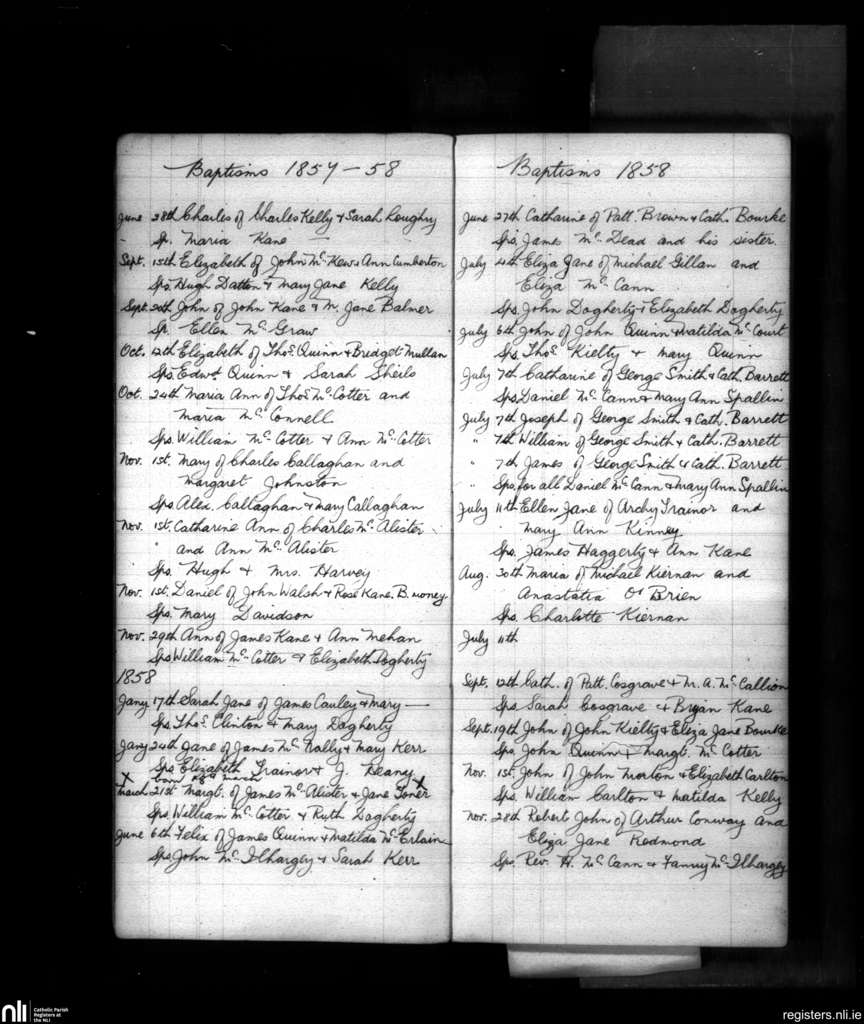 Baptisms 1857-58
June 28th Charles of Charles Kelly & Sarah Loughry
Sp. Maria Kane
Sept. 15th Elizabeth of John Mc Kew & Ann Cumberton
Sps. Hugh Datton & Mary Jane Kelly
Sept. 20th John of John Kane & M. Jane Balmer
Sp. Ellen Mc Graw
Oct. 12th Elizabeth of Thos. Quinn & Bridget Mullan
Sps. Edwd. Quinn & Sarah Sheils
Oct. 24th Maria Ann of Thos. Mc Cotter and
Maria Mc Connell
Sps. William Mc Cotter & Ann Mc Cotter
Nov. 1st. Mary of Charles Callaghan and
Margaret Johnston
Sps. Alex. Callaghan & Mary Callaghan
Nov. 1st. Catharine Ann of Charles Mc Alister
" and Ann Mc Alister
Sps. Hugh & Mrs. Harvey
Nov. 1st. Daniel of John Walsh & Rose Kane. B. money
Sps. Mary Davidson
Nov. 29th Ann of James Kane & Ann Mehan
Sps William Mc Cotter & Elizabeth Dogherty
1858
Jany 17th Sarah Jane of James Cauley & Mary —
Sps. Thos. Clinton & Mary Dogherty
Jany 24th Jane of James Mc Nally & Mary Kerr
Sps. Elizabeth Trainor & J. Heany
X born 28th March X
March 21st Margt. of James Mc Alister & Jane Toner
Sps. William Mc Cotter & Ruth Dogherty
June 6th Felix of James Quinn & Matilda Mc Erlain
Sps. John Mc Ilhargey & Sarah Kerr
Baptisms 1858
June 27th Catharine of Patt. Brown & Cath. Bourke
Sps. James Mc Dead and his sister
July 4th Eliza Jane of Michael Gillan and
Eliza Mc Cann
Sps. John Dogherty & Elizabeth Dogherty
July 6th John of John Quinn & Matilda Mc Court
Sps. Thos. Kielty & Mary Quinn
July 7th Catharine of George Smith & Cath. Barrett
Sps. Daniel Mc Cann & Mary Ann Spallin
July 7th Joseph of George Smith & Cath. Barrett
" 7th William of George Smith & Cath. Barrett
" 7th James of George Smith & Cath. Barrett
" Sps. for all Daniel Mc Cann & Mary Ann Spallin
July 11th Ellen Jane of Archy Trainor and
Mary Ann Kinney
Sps. James Haggerty & Ann Kane
Aug. 30th Maria of Michael Kiernan and
Anastatia O' Brien
Sps. Charlotte Kiernan
July 11th
Sept. 12th Cath. of Patt. Cosgrave & M. A. Mc Callion
Sps. Sarah Cosgrave & Bryan Kane
Sept. 19th John of John Kielty & Eliza Jane Bourke
Sps. John Quinn & Margt. Mc Cotter
Nov. 1st. John of John Morton & Elizabeth Carlton
Sps. William Carlton & Matilda Kelly
Nov. 28th Robert John of Arthur Conway and
Eliza Jane Redmond
Sps. Rev. H. Mc Cann & Fanny Mc Ilhargey
nli Catholic Parish
Registers at
the NLI
registers.nli.ie